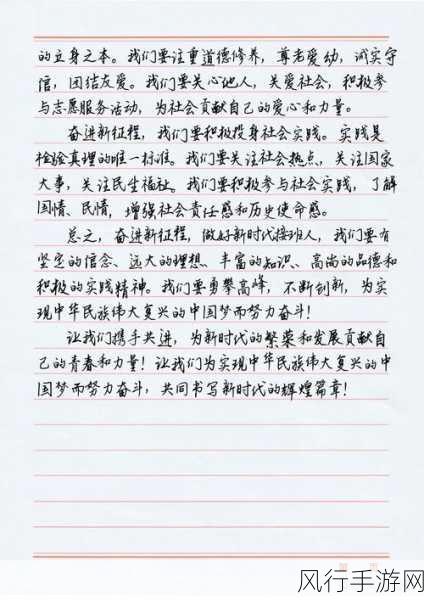 的立身之本。我们要注重道德修养，尊老爱幼，诚实守
信，团结友爱。我们要关心他人，关爱社会，积极参
与志愿服务活动，为社会贡献自己的爱心和力量。
奋进新征程，我们要积极投身社会实践。实践是
检验真理的唯一标准。我们要关注社会热点，关注国家
大事，关注民生福祉。我们要积极参与社会实践，了解
国情、民情，增强社会责任感和历史使命感。
总之，奋进新征程，做好新时代接班人，我们要有
坚定的信念、远大的理想、丰富的知识、高尚的品德和
积极的实践精神。我们要勇攀高峰，不断创新，为实
现中华民族伟大复兴的中国梦而努力奋斗！
让我们携手共进，为新时代的繁荣和发展贡献自
己的青春和力量！让我们为实现中华民族伟大复兴的中
国梦而努力奋斗，共同书写新时代的辉煌篇章！
风行手游网